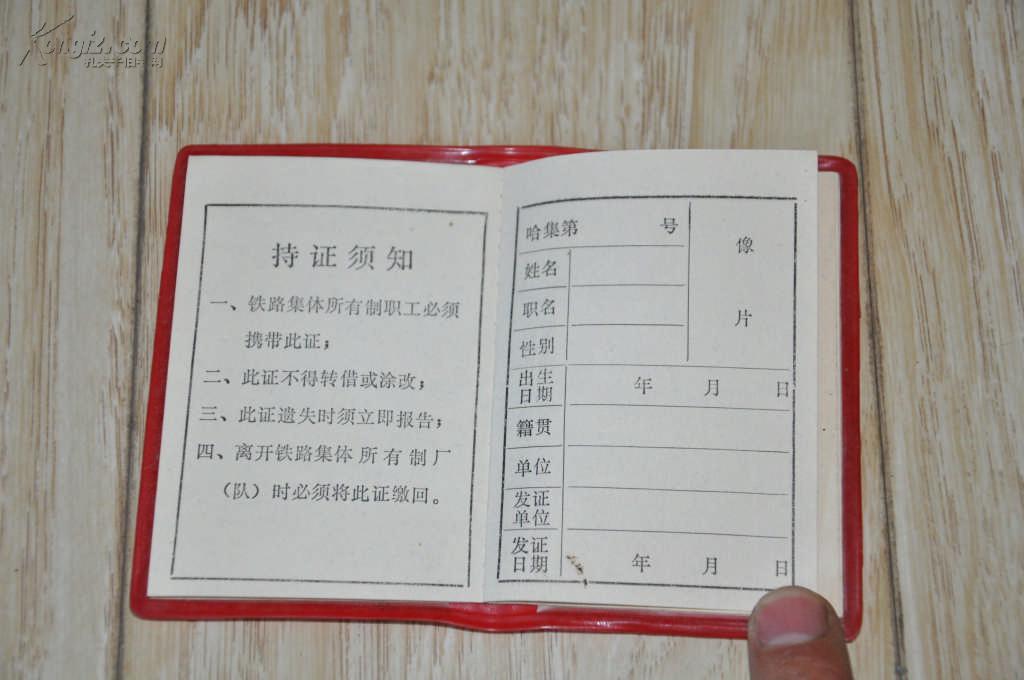 Kongfz.com
孔夫子旧书网
持证须知
一、铁路集体所有制职工必须
携带此证；
二、此证不得转借或涂改；
三、此证遗失时须立即报告；
四、离开铁路集体所有制厂
（队）时必须将此证缴回。
哈集第 号
像
片
姓名
职名
性别
出生
日期
年 月 日
籍贯
单位
发证
单位
发证
日期
年 月 日